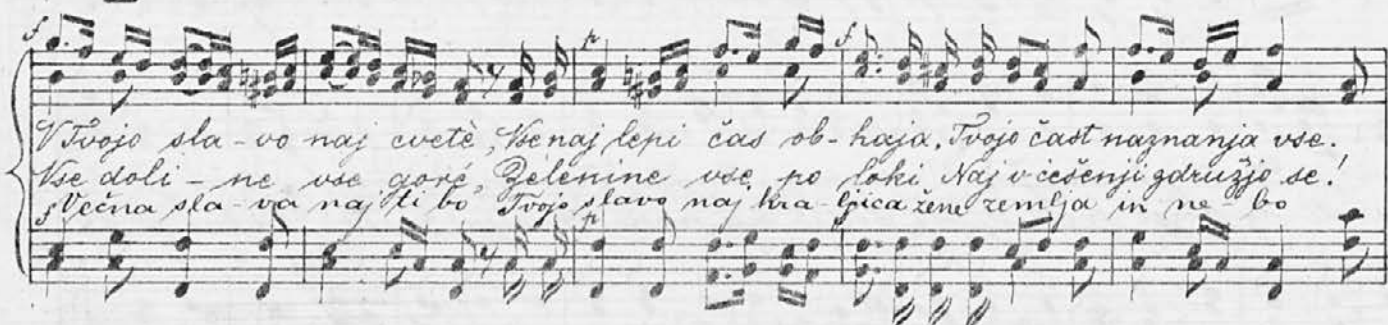 f p f
V Tvojo sla-vo naj cvetè, Vse naj lepi čas ob-haja, Tvojo čast naznanja vse.
Vse doli-ne vse goré, Zelenine vse po loki Naj v češenji združjo se!
f Večna sla-va naj ti bo Tvojo slavo naj kra-ljica žene zemlja in ne-bo
p